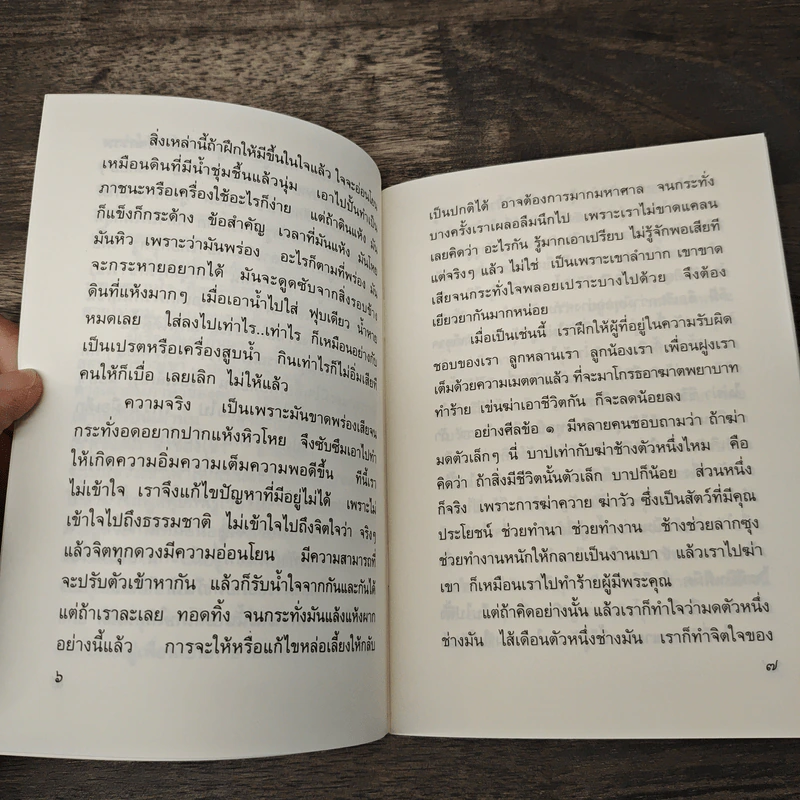 สิ่งเหล่านี้ถ้าฝึกให้มีขึ้นในใจแล้ว ใจจะอ่อนโยน
เหมือนดินที่มีน้ำชุ่มชื้นแล้วนุ่ม เอาไปปั้นทำเป็น
ภาชนะหรือเครื่องใช้อะไรก็ง่าย แต่ถ้าดินแห้ง มัน
ก็แข็งก็กระด้าง ข้อสำคัญ เวลาที่มันแห้ง มันโหย
มันหิว เพราะว่ามันพร่อง อะไรก็ตามที่พร่อง มัน
จะกระหายอยากได้ มันจะดูดซับจากสิ่งรอบข้าง
ดินที่แห้งมากๆ เมื่อเอาน้ำไปใส่ ฟุบเดียว น้ำหาย
หมดเลย ใส่ลงไปเท่าไร..เท่าไร ก็เหมือนอย่างกับ
เป็นเปรตหรือเครื่องสูบน้ำ กินเท่าไรก็ไม่อิ่มเสียที
คนให้ก็เบื่อ เลยเลิก ไม่ให้แล้ว
ความจริง เป็นเพราะมันขาดพร่องเสียจน
กระทั่งอดอยากปากแห้งหิวโหย จึงซับซึมเอาไปทำ
ให้เกิดความอิ่มความเต็มความพอดีขึ้น ทีนี้เรา
ไม่เข้าใจ เราจึงแก้ไขปัญหาที่มีอยู่ไม่ได้ เพราะไม่
เข้าใจไปถึงธรรมชาติ ไม่เข้าใจไปถึงจิตใจว่า จริงๆ
แล้วจิตทุกดวงมีความอ่อนโยน มีความสามารถที่
จะปรับตัวเข้าหากัน แล้วก็รับน้ำใจจากกันและกันได้
แต่ถ้าเราละเลย ทอดทิ้ง จนกระทั่งมันแล้งแห้งผาก
อย่างนี้แล้ว การจะให้หรือแก้ไขหล่อเลี้ยงให้กลับ
๖
เป็นปกติได้ อาจต้องการมากมหาศาล จนกระทั่ง
บางครั้งเราเผลอลืมนึกไป เพราะเราไม่ขาดแคลน
เลยคิดว่า อะไรกัน รู้มากเอาเปรียบ ไม่รู้จักพอเสียที
แต่จริงๆ แล้ว ไม่ใช่ เป็นเพราะเขาลำบาก เขาขาด
เสียจนกระทั่งใจพลอยเปราะบางไปด้วย จึงต้อง
เยียวยากันมากหน่อย
เมื่อเป็นเช่นนี้ เราฝึกให้ผู้ที่อยู่ในความรับผิด
ชอบของเรา ลูกหลานเรา ลูกน้องเรา เพื่อนฝูงเรา
เต็มด้วยความเมตตาแล้ว ที่จะมาโกรธอาฆาตพยาบาท
ทำร้าย เข่นฆ่าเอาชีวิตกัน ก็จะลดน้อยลง
อย่างศีลข้อ ๑ มีหลายคนชอบถามว่า ถ้าฆ่า
มดตัวเล็กๆ นี่ บาปเท่ากับฆ่าช้างตัวหนึ่งไหม คือ
คิดว่า ถ้าสิ่งมีชีวิตนั้นตัวเล็ก บาปก็น้อย ส่วนหนึ่ง
ก็จริง เพราะการฆ่าควาย ฆ่าวัว ซึ่งเป็นสัตว์ที่มีคุณ
ประโยชน์ ช่วยทำนา ช่วยทำงาน ช้างช่วยลากซุง
ช่วยทำงานหนักให้กลายเป็นงานเบา แล้วเราไปฆ่า
เขา ก็เหมือนเราไปทำร้ายผู้มีพระคุณ
แต่ถ้าคิดอย่างนั้น แล้วเราก็ทำใจว่ามดตัวหนึ่ง
ช่างมัน ไส้เดือนตัวหนึ่งช่างมัน เราก็ทำจิตใจของ
๗